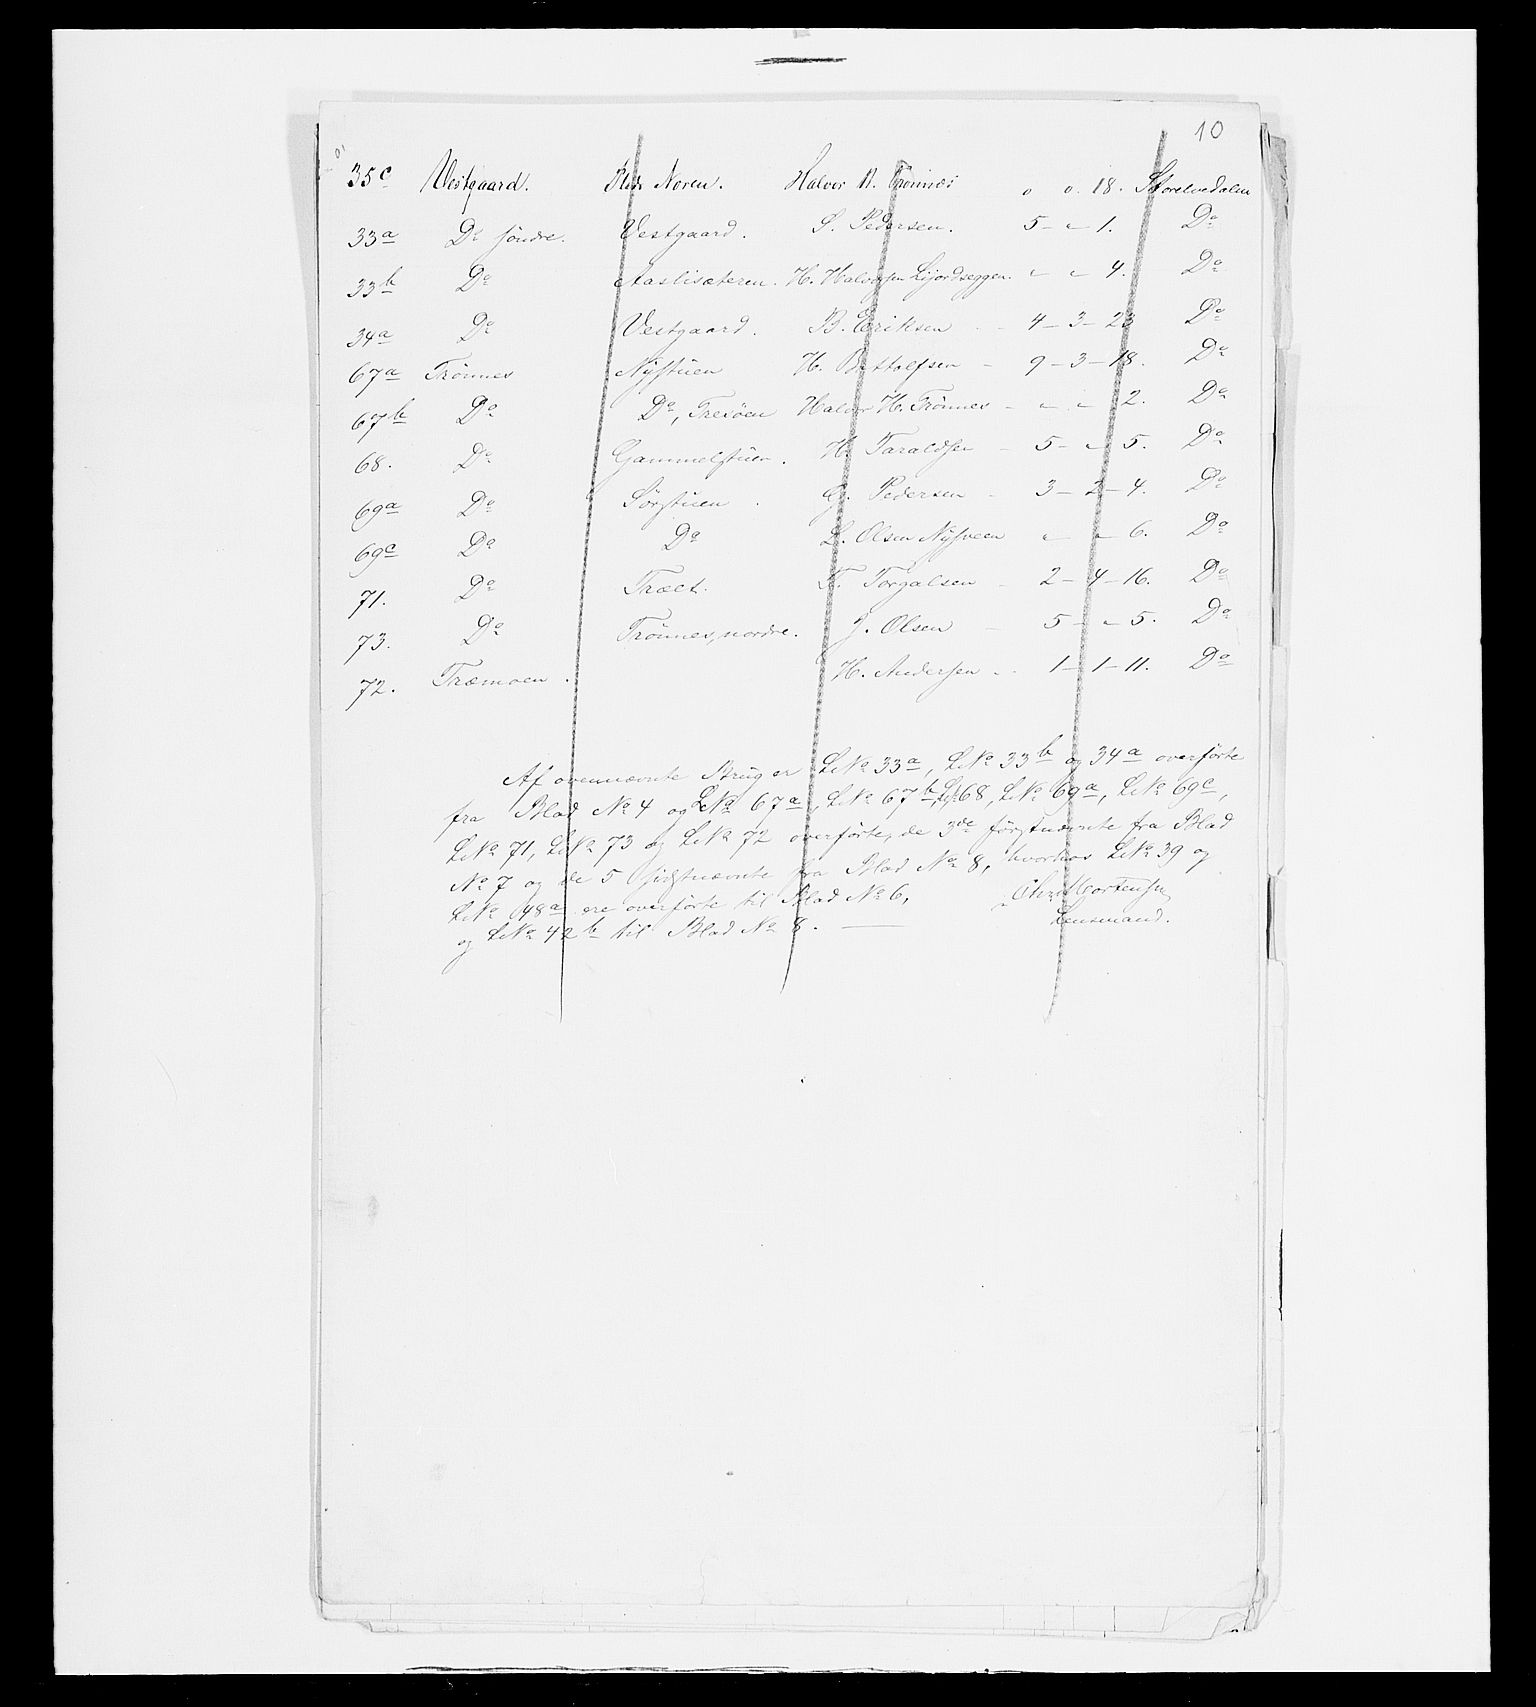 10
35c Vestgaard. Noren. Halvor H. Trönnæs o o. 18. Storelvedalen
33a Do söndre. Vestgaard. S. Pedersen. 5 - " 1. Do
33b Do Aaslisæteren. H. Halvorsen Lijordseggen. " " 4. Do
34a Do Vestgaard. B. Eriksen - 4 - 3 - 23 Do
67a Trönnes Nÿstuen H. Bottolfsen - 9 - 3 - 18. Do
67b Do Do, Tresöen Halvor H. Trönnes - " " 2. Do
68. Do Gammelstuen. H. Taraldsen - 5 - " 5. Do
69a Do Sörstuen. G. Pedersen - 3 - 2 - 4. Do
69c Do Do L. Olsen Nÿsveen " " 6. Do
71. Do Træet. T. Torgalsen - 2 - 4 - 16. Do
73. Do Trönnes, nordre. J. Olsen - 5 - " 5. Do
72. Træmoen. H. Andersen - 1 - 1 - 11. Do
Af ovennævnte Brug er LNo 33a, LNo 33b og 34a overförte
fra Blad No 4 og LNo 67a, LNo 67b, LNo 68, LNo 69a, LNo 69c,
LNo 71, LNo 73 og LNo 72 overförte, de 3de förstnævnte fra Blad
No 7 og de 5 sidstnævnte fra Blad No 8, hvorhos LNo 39 og
LNo 48a ere overförte til Blad No 6, Chr. Mortensen
og LNo 42b til Blad No 8. Lensmand.